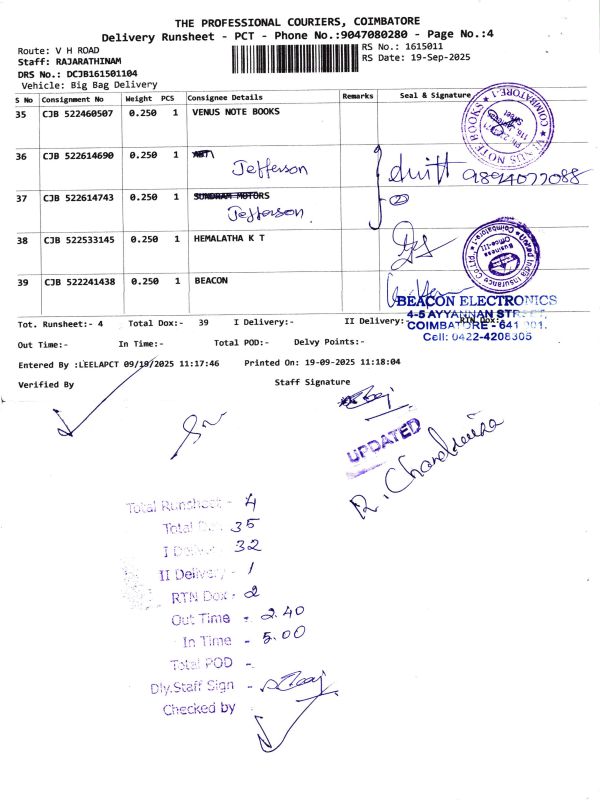 THE PROFESSIONAL COURIERS, COIMBATORE
Delivery Runsheet - PCT - Phone No.:9047080280 - Page No.:4
Route: V H ROAD
RS No.: 1615011
Staff: RAJARATHINAM
RS Date: 19-Sep-2025
DRS No.: DCJB161501104
Vehicle: Big Bag Delivery
S No Consignment No Weight PCS Consignee Details Remarks Seal & Signature
35 CJB 522460507 0.250 1 VENUS NOTE BOOKS
VENUS NOTE BOOKS COIMBATORE-1
36 CJB 522614690 0.250 1
Jefferson
9894077088
37 CJB 522614743 0.250 1 SUNDRAM MOTORS
Jefferson
2
38 CJB 522533145 0.250 1 HEMALATHA K T
United India Insurance Co Ltd Coimbatore-1
Business Office-III
39 CJB 522241438 0.250 1 BEACON
BEACON ELECTRONICS
4-5 AYYANNAN
COIMBATORE - 641 001.
Cell: 0422-4208305
Tot. Runsheet:- 4 Total Dox:- 39 I Delivery:- II Delivery: RTN Dox:-
Out Time:- In Time:- Total POD:- Delvy Points:-
Entered By :LEELAPCT 09/19/2025 11:17:46 Printed On: 19-09-2025 11:18:04
Verified By Staff Signature
UPDATED
Total Runsheet - 4
Total 35
I 32
II Delivery - 1
RTN Dox - 2
Out Time - 2.40
In Time - 5.00
Total POD -
Dly.Staff Sign -
Checked by